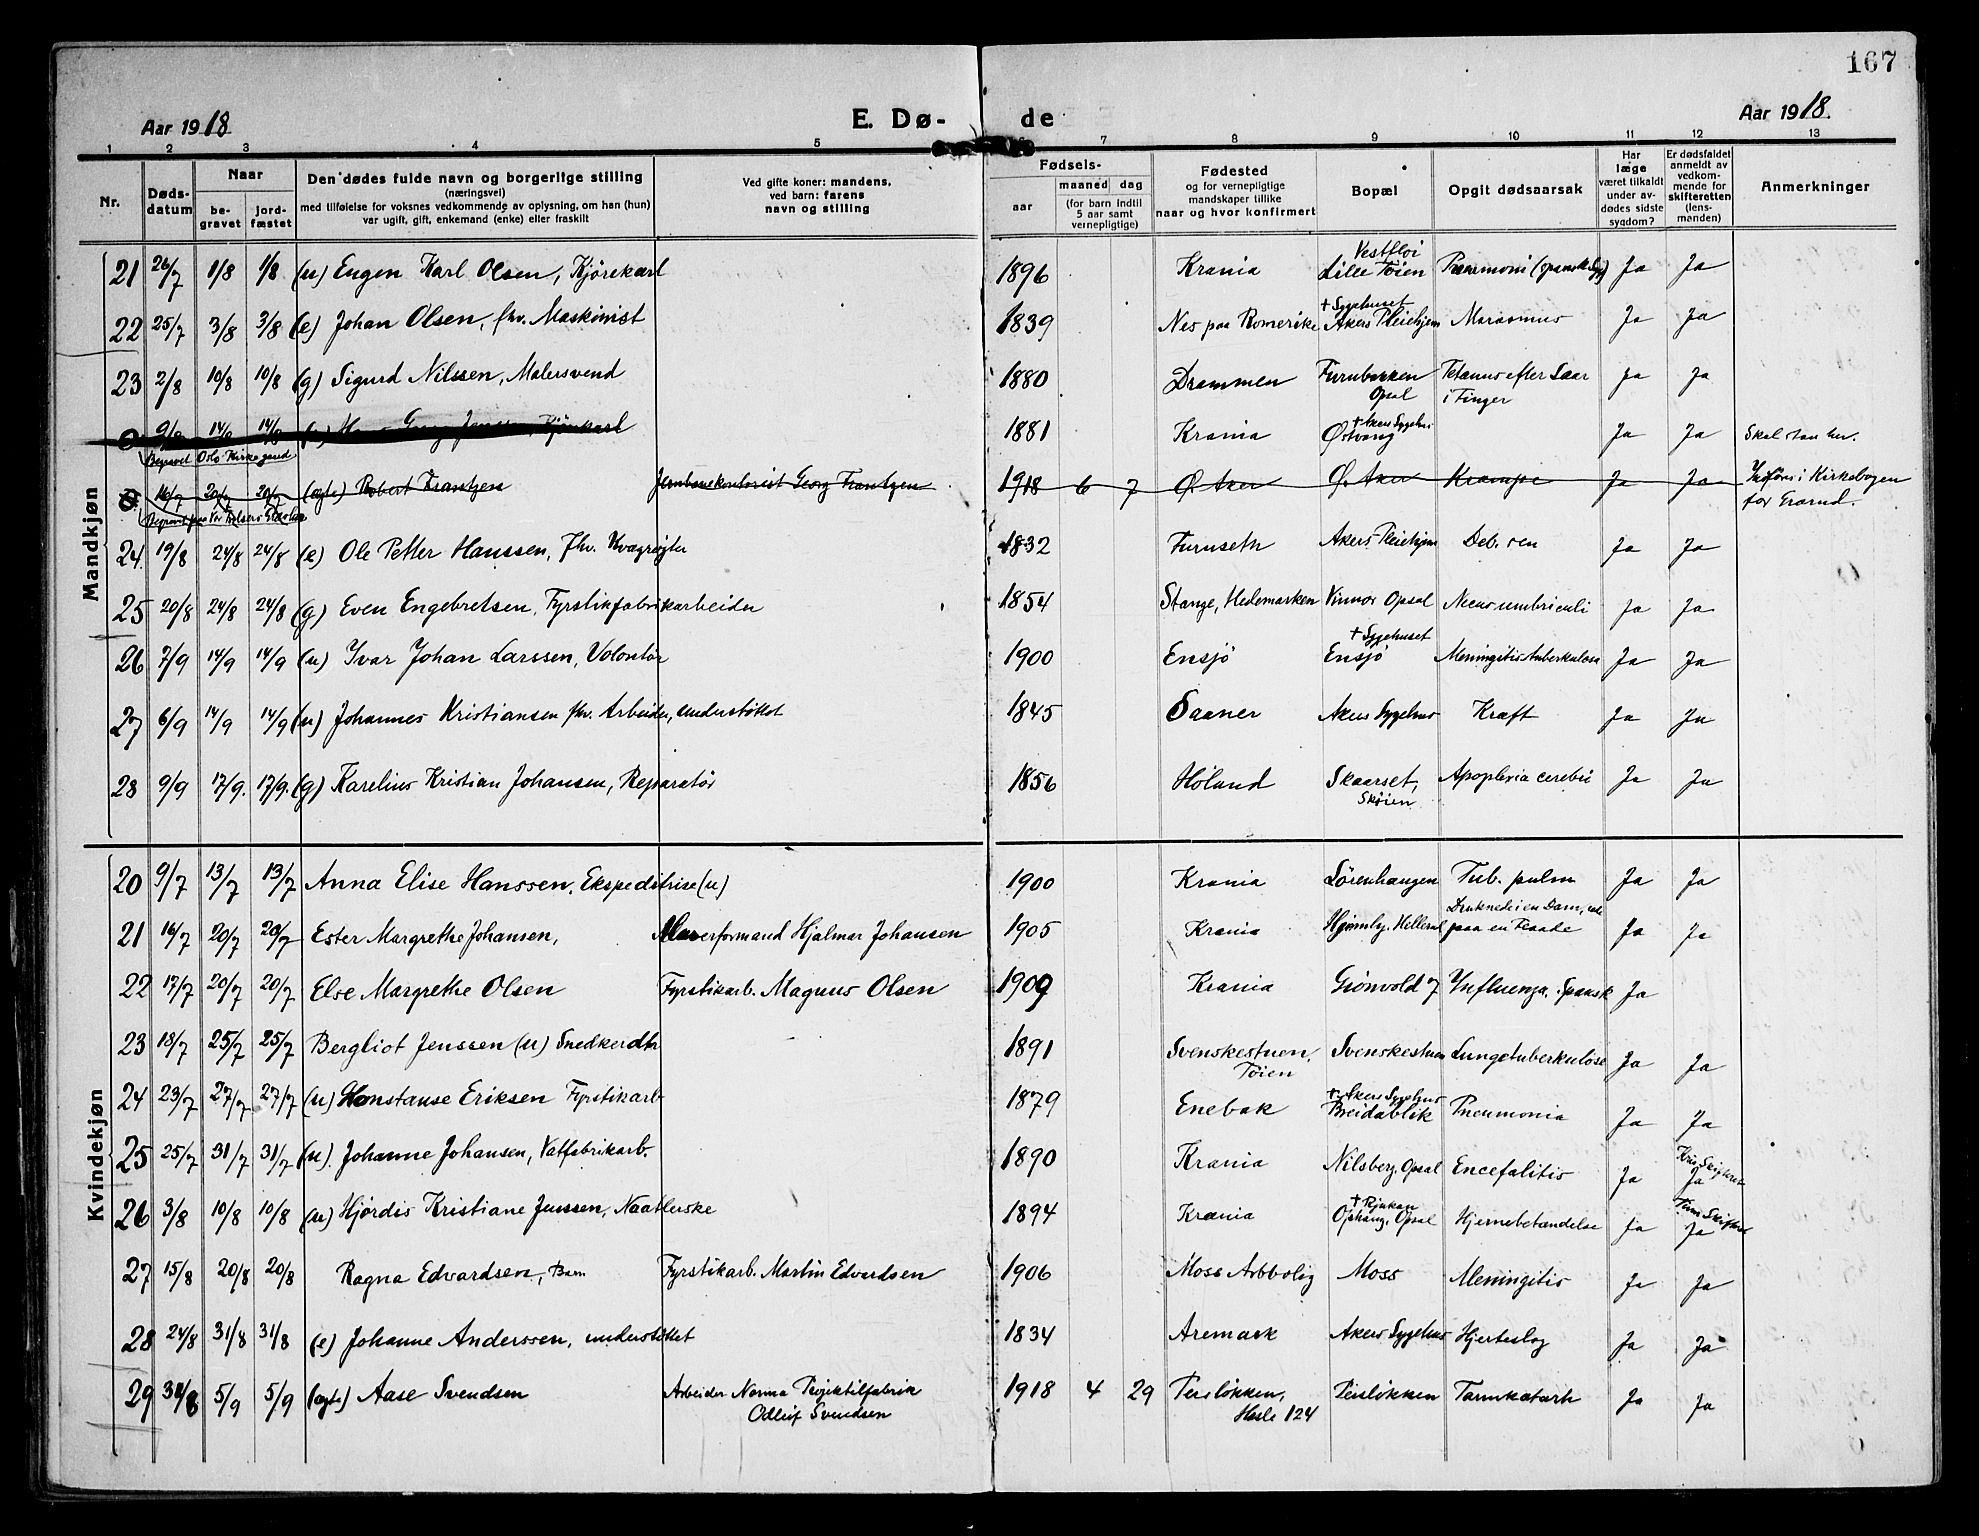 167
Aar 1918 E. Dø- de Aar 1918.
1 2 3 4 5 7 8 9 10 11 12 13
Nr.
Døds-
datum
Naar
be-
gravet
jord-
fæstet
Den dødes fulde navn og borgerlige stilling
(næringsvei)
med tilføielse for voksnes vedkommende av oplysning, om han (hun)
var ugift, gift, enkemand (enke) eller fraskilt
Ved gifte koner: mandens,
ved barn: farens
navn og stilling
Fødsels-
aar
maaned dag
(for barn indtil
5 aar samt
vernepligtige)
Fødested
og for vernepligtige
mandskaper tillike
naar og hvor konfirmert
Bopæl
Opgit dødsaarsak
Har
læge
været tilkaldt
under av-
dødes sidste
sygdom?
Er dødsfaldet
anmeldt av
vedkom-
mende for
skifteretten
(lens-
manden)
Anmerkninger
Mandkjøn
Vestfloi
21 26/7 1/8 1/8 (u) Eugen Karl Olsen, Kjørekarl 1896 Krania Lille Töien Ja Ja
+ Sygehuset
22 25/7 3/8 3/8 (e) Johan Olsen, fhv. Maskinist 1839 Nes paa Romerike Akers Pleiehjem Marasmus Ja Ja
23 2/8 10/8 10/8 (g) Sigurd Nilssen, Malersvend 1880 Drammen Furubakken Tetanus efter Saar Ja Ja
Opsal i Finger
+ Akers Sygehus
14/8 14/8 Kjørekarl 1881 Krania Østvang Ja Ja Skal staa her.
Begravet Oslo Kirkegaard
16/7 20/7 20/7 (egte) Robert Frantzen Jernbanekontorist Georg Frantzen 1918 6 7 Ø. Aker Ø. Aker Krampe Ja Ja Indføres i Kirkebogen
for Grorud.
24. 19/8 24/8 24/8 (e) Ole Petter Hanssen, Fhv. Kvægrøgter 1832 Furuseth Akers Pleiehjem Deb. sen Ja Ja
25 20/8 24/8 24/8 (g) Even Engebretsen, Fyrstikfabrikarbeider 1854 Stange, Hedemarken Vinnor Opsal Ja Ja
+ Sygehuset
26 7/9 14/9 14/9 (u) Ivar Johan Larssen, Volontør 1900 Ensjö Ensjö Meningitis tuberkulosa Ja Ja
27 6/9 14/9 14/9 (u) Johannes Kristiansen fhv. Arbeider, understöttet 1845 Saaner Akers Sygehus Kræft Ja Ja
28 9/9 17/9. 17/9. (g) Karelius Kristian Johansen, Reparatör 1856 Höland Skaarset, Apoplexia cerebri Ja Ja
Skøien
Kvindekjøn
20 9/7 13/7 13/7 Anna Elise Hanssen, Ekspeditrise (u) 1900 Krania Lørenhaugen Tub. pulm Ja Ja
Druknede i en Dam,
21 16/7 20/7 20/7 Ester Margrethe Johansen, Murerformand Hjalmar Johansen 1905 Krania paa en Flaade Ja Ja
22 17/7 20/7 20/7 Else Margrethe Olsen Fyrstikarb. Magnus Olsen 1909 Krania Grönvold 7 Influenza, Spansk Ja
23 18/7 25/7 25/7 Bergliot Jenssen (u) Snedkerdtr 1891 Svenskestuen, Svenskestuen Lungetuberkulose Ja Ja
Töien
+ Akers Sygehus
24 23/7 27/7 27/7 (u) Konstanse Eriksen Fyrstikarb 1879 Enebak Breidablik Pneumonia Ja Ja
25 25/7 31/7 31/7 (u). Johanne Johansen, Vatfabrikarb. 1890 Krania Nilsberg, Opsal Encefalitis Ja Ja
+ Rjukan
26 3/8 10/8 10/8 (u) Hjördis Kristiane Jenssen, Naatlerske 1894 Krania Ophaug, Opsal Hjernebetændelse Ja Ja
27 15/8 20/8 20/8 Ragna Edvardsen, Barn Fyrstikarb. Martin Edvardsen 1906 Moss Arbbolig Moss Meningitis Ja Ja
28 24/8 31/8 31/8 (e) Johanne Anderssen, understöttet 1834 Aremark Akers Sygehus Hjerteslag Ja Ja
29 31/8 5/9 5/9 (egte) Aase Svendsen Arbeider Norma Projektilfabrik 1918 4 29 Peisløkken, Peisløkken Tarmkatarh Ja Ja
Odleif Svendsen Hasle 124